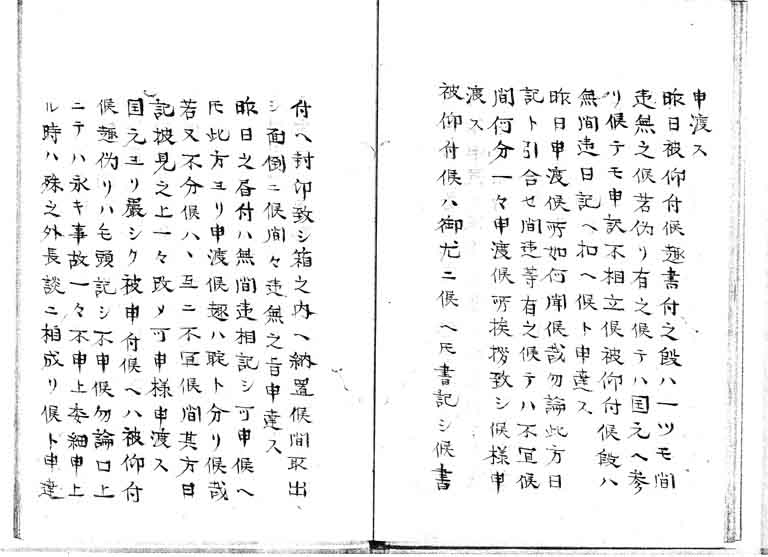 申渡ス
昨日被仰付候趣書付之段ハ一ツモ間
違無之候若偽リ有之候テハ国元ヘ参
リ候テモ申訳不相立候被仰付候段ハ
無間違日記ヘ扣ヘ候ト申達ス
昨日申渡候所如何聞候哉勿論此方日
記ト引合セ間違等有之候テハ不宜候
間何分一々申渡候所挨拶致シ候様申
渡ス
被仰付候ハ御尤ニ候ヘ𪜈書記シ候書
付ヘ封印致シ箱之内ヘ納置候間取出
シ面倒ニ候間々違無之旨申達ス
昨日之昼付ハ無間違相記シ可申候ヘ
𪜈此方ヨリ申渡候趣ハ聢ト分リ候哉
若又不分候ハヽ互ニ不宜候間其方日
記披見之上一々改メ可申様申渡ス
国元ヨリ厳シク被申付候ヘハ被仰付
候趣偽リハ毛頭記シ不申候勿論口上
ニテハ永キ事故一々不申上委細申上
ル時ハ殊之外長談ニ相成リ候ト申達